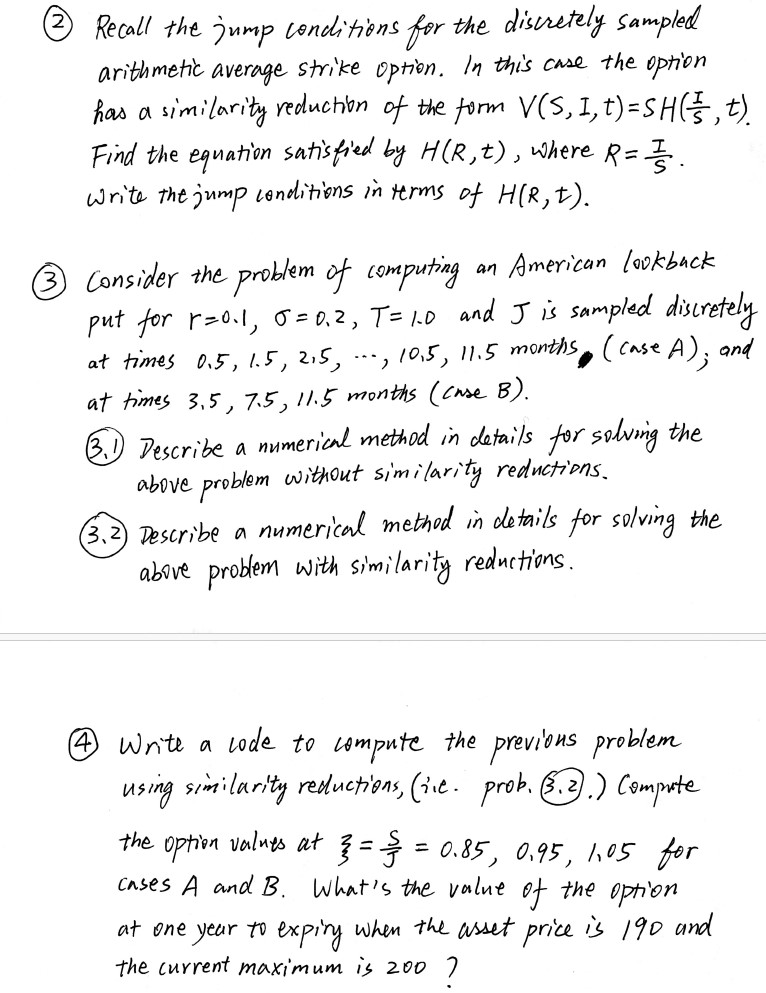 ② Recall the jump conditions for the discretely sampled
arithmetic average strike option. In this case the option
has a similarity reduction of the form V(S, I, t) = S H(I/S, t).
Find the equation satisfied by H(R, t), where R = I/S.
Write the jump conditions in terms of H(R, t).
③ Consider the problem of computing an American lookback
put for r=0.1, σ=0.2, T=1.0 and J is sampled discretely
at times 0.5, 1.5, 2.5, ..., 10.5, 11.5 months, (case A); and
at times 3.5, 7.5, 11.5 months (case B).
(3.1) Describe a numerical method in details for solving the
above problem without similarity reductions.
(3.2) Describe a numerical method in details for solving the
above problem with similarity reductions.
④ Write a code to compute the previous problem
using similarity reductions, (i.e. prob. (3.2).) Compute
the option values at ξ = S/J = 0.85, 0.95, 1.05 for
cases A and B. What's the value of the option
at one year to expiry when the asset price is 190 and
the current maximum is 200 ?